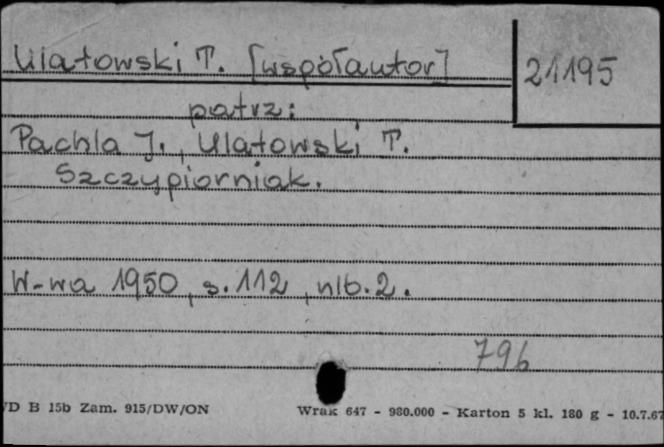 Ulatowski T. [współautor]
21195
patrz:
Pachla J., Ulatowski T.
Szczypiorniak.
W-wa 1950, s. 112, nlb. 2.
796
D B 15b Zam. 915/DW/ON
Wrak 647 - 980.000 - Karton 5 kl. 180 g - 10.7.67